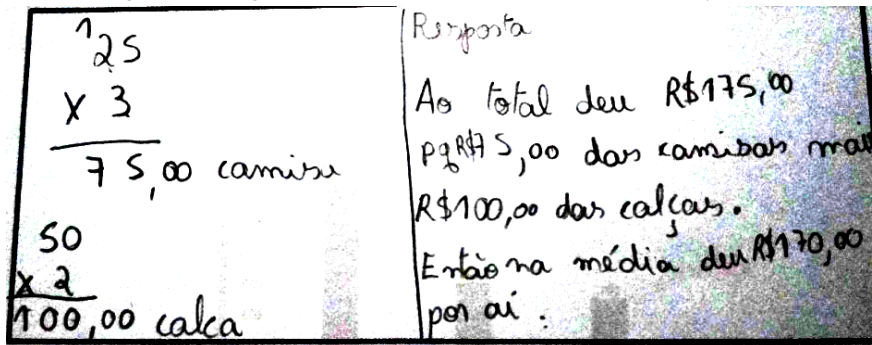 1
25
x 3
75,00 camisa
50
x 2
100,00 calca
Resposta
Ao total deu R$175,00
pq R$75,00 das camisas mais
R$100,00 das calças.
Então na média deu R$170,00
por aí.